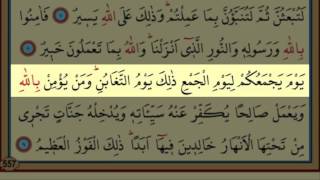 لَتُبْعَثُنَّ ثُمَّ لَتُنَبَّؤُنَّ بِمَا عَمِلْتُمْ وَذٰلِكَ عَلَى اللّٰهِ يَسٖيرٌ ۝ فَاٰمِنُوا
بِاللّٰهِ وَرَسُولِهٖ وَالنُّورِ الَّذٖٓي اَنْزَلْنَا وَاللّٰهُ بِمَا تَعْمَلُونَ خَبٖيرٌ ۝
يَوْمَ يَجْمَعُكُمْ لِيَوْمِ الْجَمْعِ ذٰلِكَ يَوْمُ التَّغَابُنِ وَمَنْ يُؤْمِنْ بِاللّٰهِ
وَيَعْمَلْ صَالِحًا يُكَفِّرْ عَنْهُ سَيِّـَٔاتِهٖ وَيُدْخِلْهُ جَنَّاتٍ تَجْرٖي
مِنْ تَحْتِهَا الْاَنْهَارُ خَالِدٖينَ فٖيهَٓا اَبَدًا ذٰلِكَ الْفَوْزُ الْعَظٖيمُ ۝
557